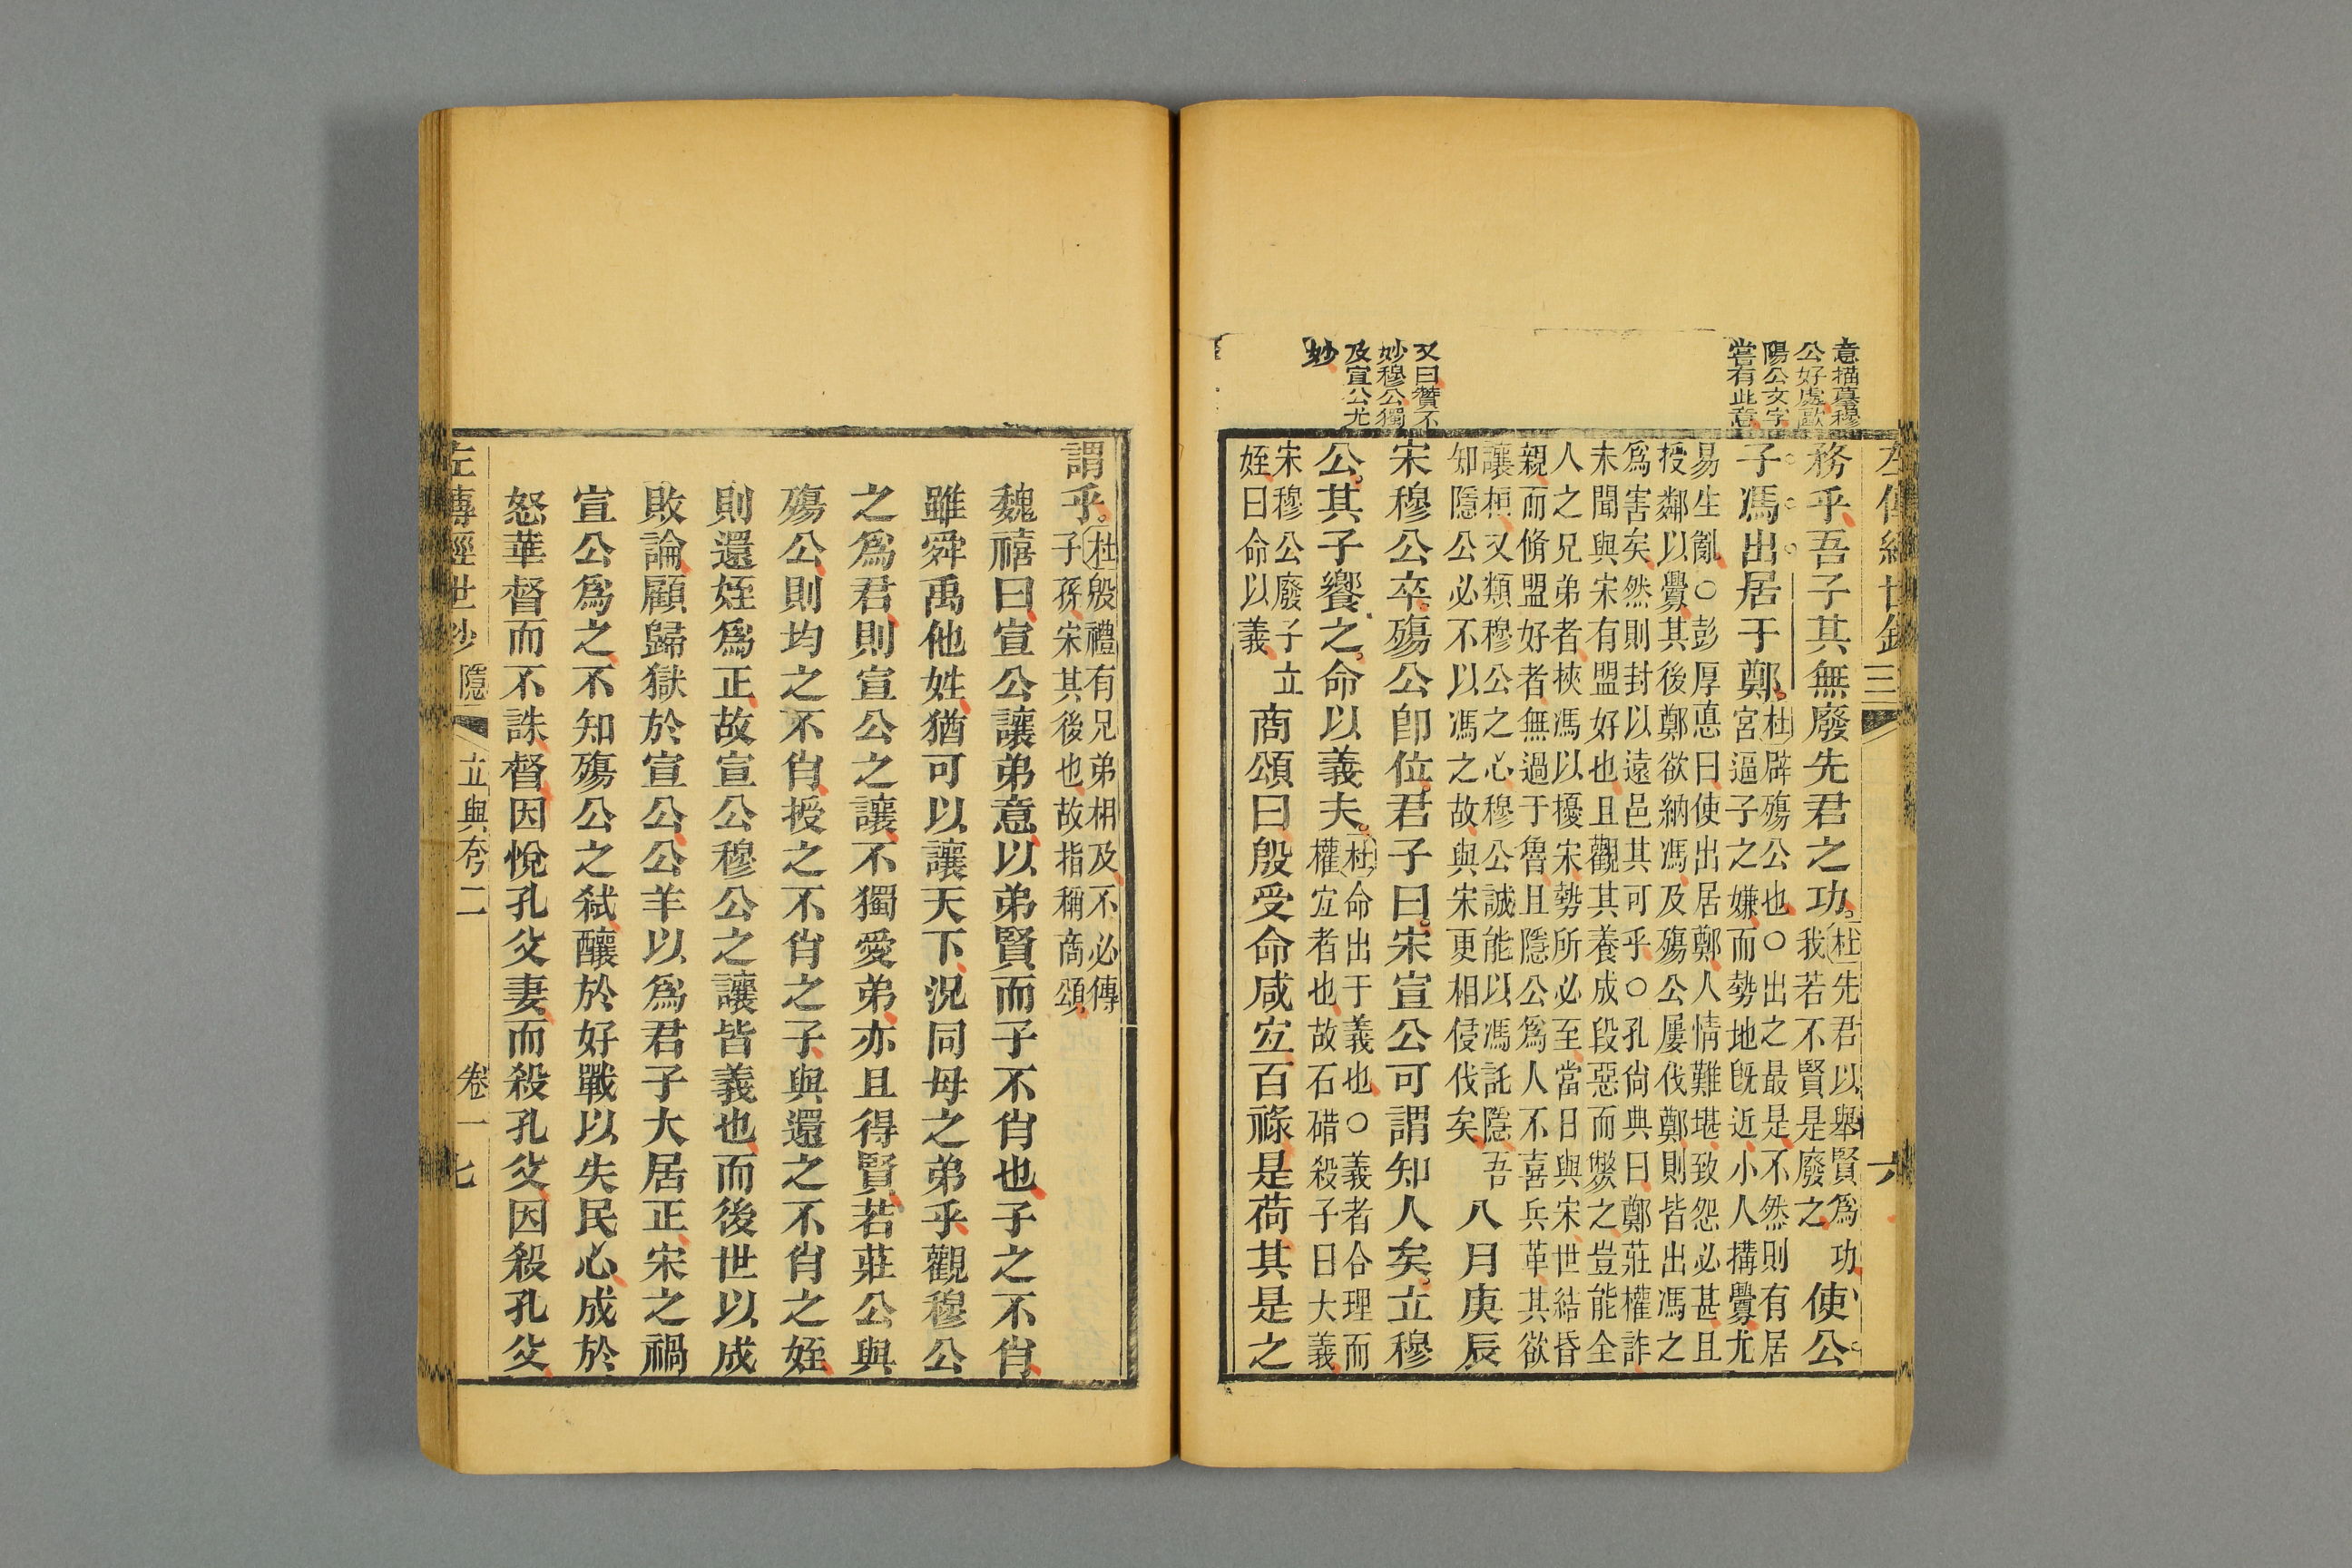 意描募穆
公好處歐
陽公文字
嘗有此意
又曰贊不
妙穆公獨
及宣公尤
妙
務乎吾子其無廢先君之功杜先君以舉賢爲功
我若不賢是廢之使公
子馮出居于鄭杜辟殤公也○出之最是不然則有居
宮逼子之嫌而勢地旣近小人搆釁尤
易生亂○彭厚悳曰使出居鄭人情難堪致怨必甚且
授鄰以釁其後鄭欲納馮及殤公屢伐鄭則皆出馮之
爲害矣然則封以遠邑其可乎○孔尙典曰鄭莊權詐
未聞與宋有盟好也且觀其養成段惡而斃之豈能全
人之兄弟者挾馮以擾宋勢所必至當日與宋世結昏
親而脩盟好者無過于魯且隱公爲人不喜兵革其欲
讓桓又類穆公之心穆公誠能以馮託隱吾
知隱公必不以馮之故與宋更相侵伐矣八月庚辰
宋穆公卒殤公卽位君子曰宋宣公可謂知人矣立穆
公其子饗之命以義夫杜命出于義也○義者合理而
權宐者也故石碏殺子曰大義
宋穆公廢子立
姪曰命以義商頌曰殷受命咸宐百祿是荷其是之
左傳經世鈔
三
六
謂乎杜殷禮有兄弟相及不必傳
子孫宋其後也故指稱商頌
魏禧曰宣公讓弟意以弟賢而子不肖也子之不肖
雖舜禹他姓猶可以讓天下況同母之弟乎觀穆公
之爲君則宣公之讓不獨愛弟亦且得賢若莊公與
殤公則均之不肖授之不肖之子與還之不肖之姪
則還姪爲正故宣公穆公之讓皆義也而後世以成
敗論顧歸獄於宣公公羊以爲君子大居正宋之禍
宣公爲之不知殤公之弑釀於好戰以失民心成於
怒華督而不誅督因悅孔父妻而殺孔父因殺孔父
左傳經世鈔 隱 立與夸二 卷一 七